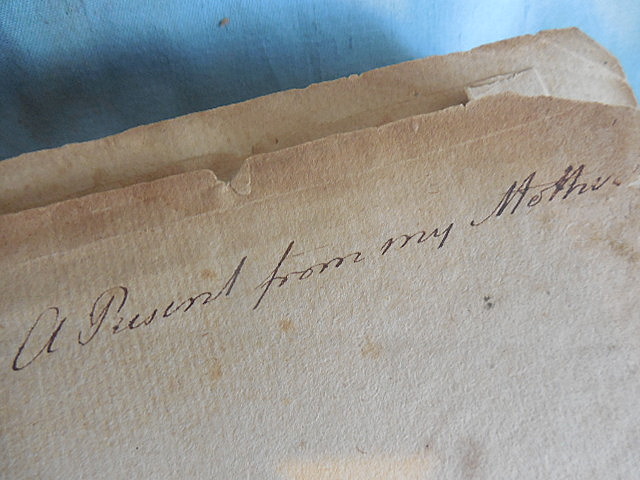 A Present from my Mother